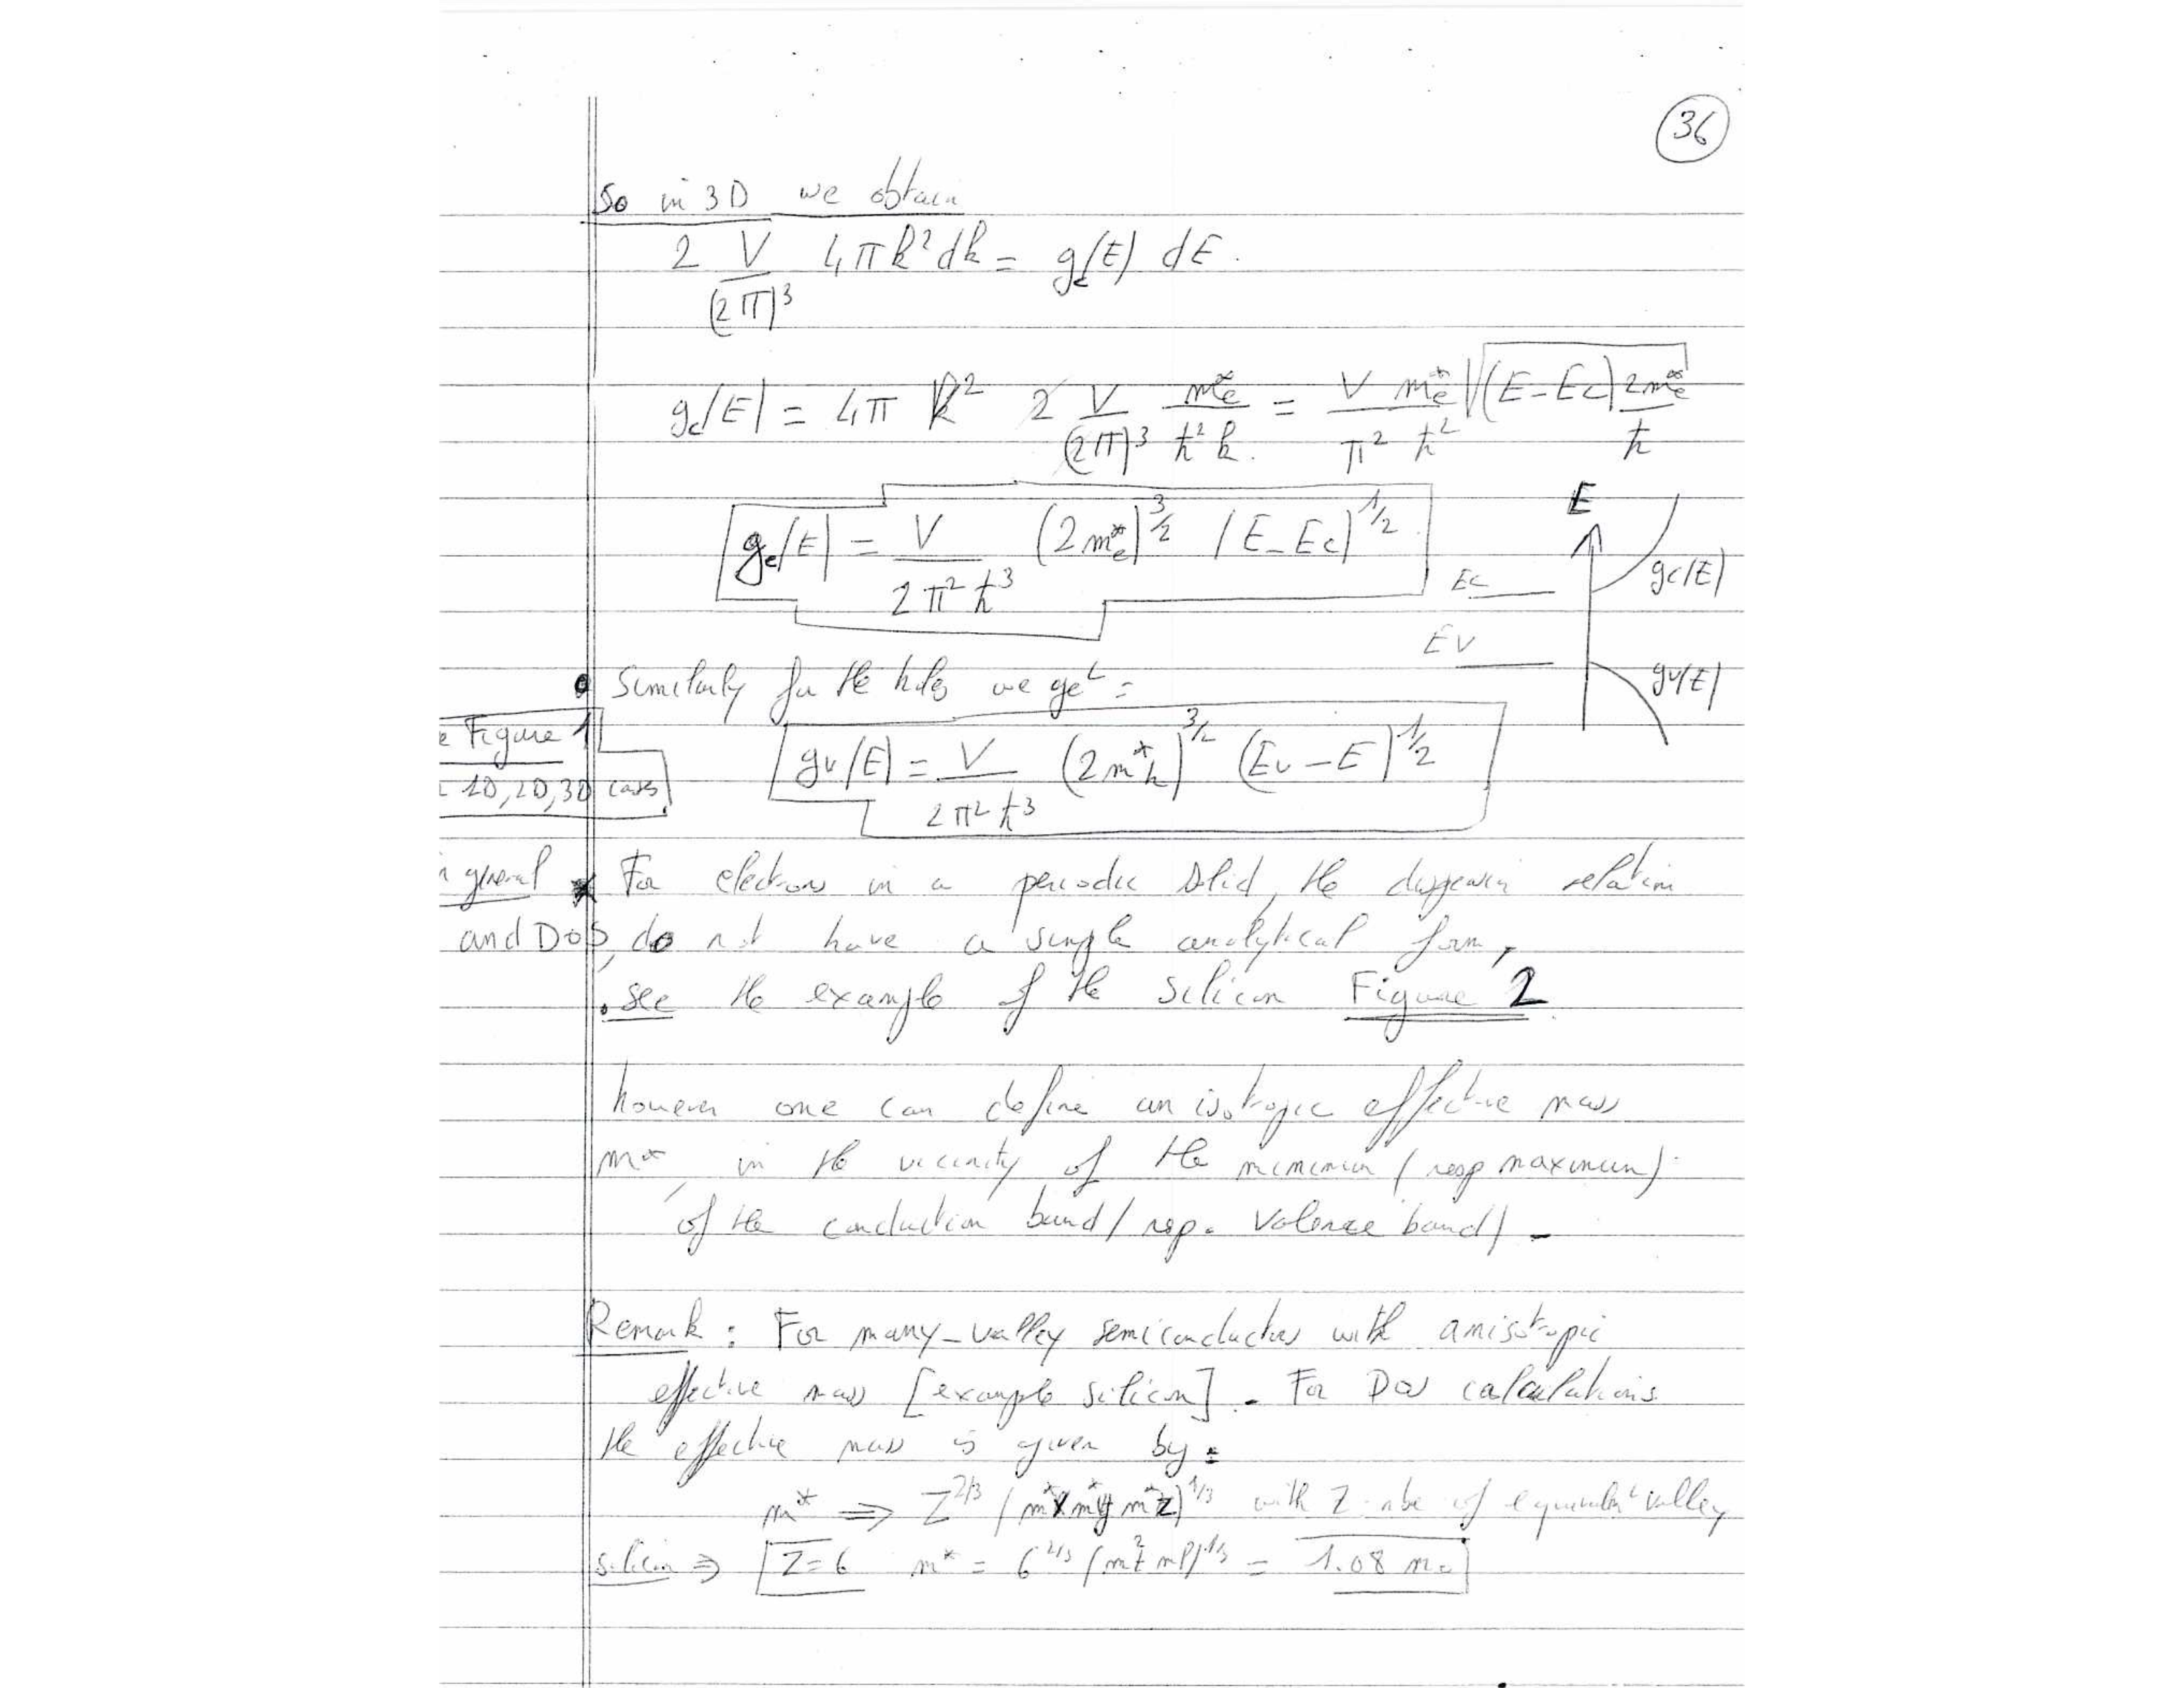 36
So in 3D we obtain
2 V/(2π)³ 4πk²dk = gc(E) dE.
gc(E) = 4π k² 2 V/(2π)³ me*/ħ²k. = V me*/π² ħ² √(E-Ec) 2me*/ħ
gc(E) = V/2π²ħ³ (2me*)^3/2 (E-Ec)^1/2
E
gc(E)
Ec
Ev
gv(E)
• Similarly for the holes we get =
e Figure 1
1D, 2D, 3D cases
gv(E) = V/2π²ħ³ (2m*h)^3/2 (Ev-E)^1/2
general * For electrons in a periodic solid, the dispersion relation
and DoS, do not have a simple analytical form,
. see the example of the silicon Figure 2.
however one can define an isotropic effective mass
m*, in the vicinity of the minimum (resp maximum)
of the conduction band (resp. Valence band) -
Remark : For many-valley semiconductors with anisotropic
effective mass [example silicon]. - For DoS calculations
the effective mass is given by :
m* ⇒ Z^2/3 (m*x m*y m*z)^1/3 with Z nbe of equivalent valley
silicon ⇒ Z=6 m* = 6^2/3 (mt² ml)^1/3 = 1.08 mo